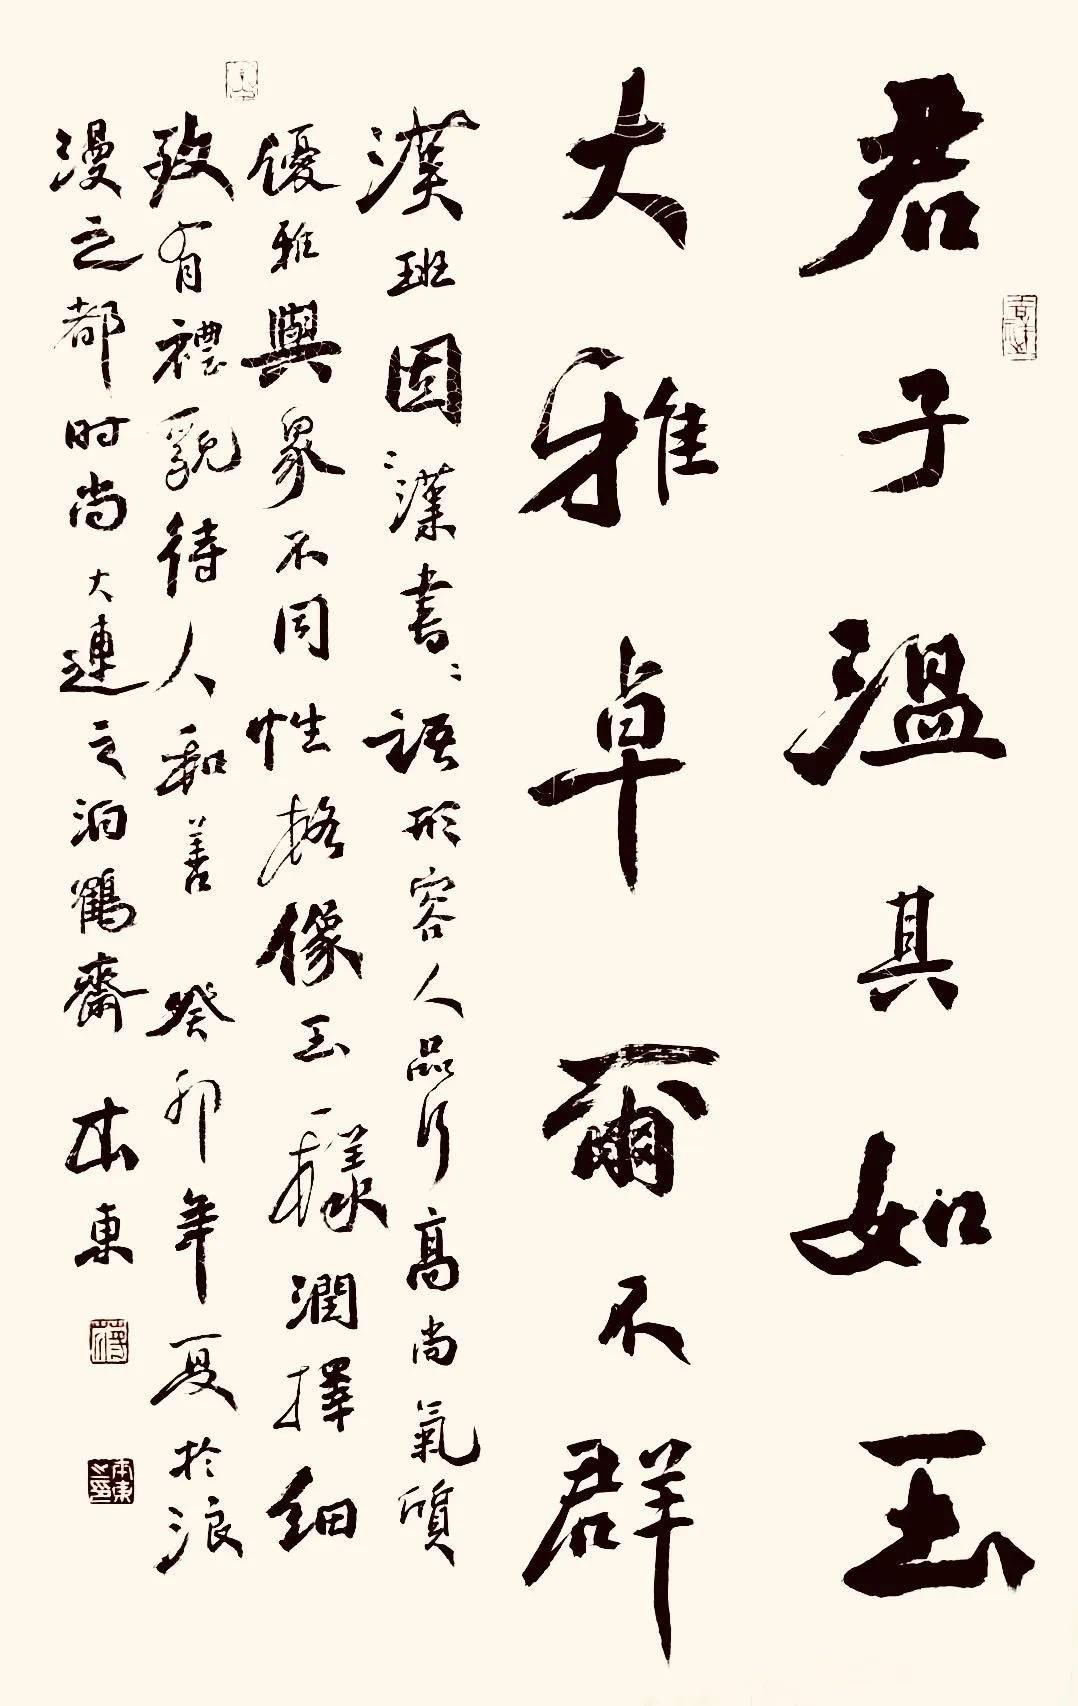 君子温其如玉
大雅卓爾不群
漢班固漢書語形容人品行高尚氣質
優雅與眾不同性格像玉一樣潤擇細
致有禮貌待人和善 癸卯年夏於浪
漫之都时尚大連之泊鶴齋 本東